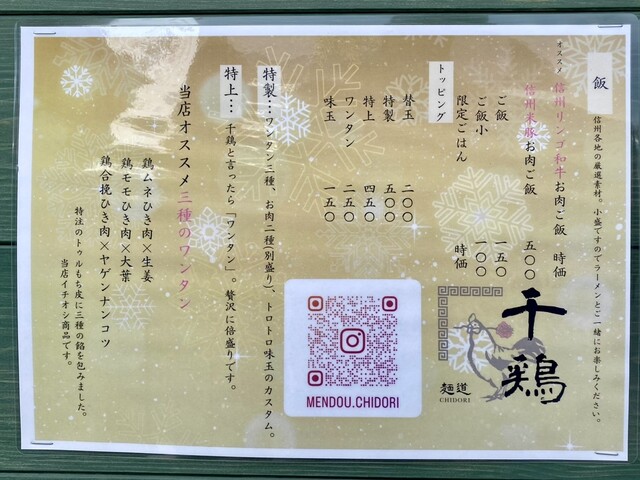 飯
信州各地の厳選素材。小盛ですのでラーメンとご一緒にお楽しみください。
オススメ 信州リンゴ和牛お肉ご飯 時価
信州米豚お肉ご飯 五〇〇
ご飯 一五〇
ご飯小 一〇〇
限定ごはん 時価
トッピング
替玉 二〇〇
特製 五〇〇
特上 四五〇
ワンタン 二五〇
味玉 一五〇
特製…ワンタン三種、お肉二種(別盛り)、トロトロ味玉のカスタム。
特上… 千鶏と言ったら「ワンタン」。贅沢に倍盛りです。
当店オススメ三種のワンタン
鶏ムネひき肉×生姜
鶏モモひき肉×大葉
鶏合挽ひき肉×ヤゲンナンコツ
特注のトゥルもち皮に三種の餡を包みました。
当店イチオシ商品です。
MENDOU.CHIDORI
千鶏
麺道
CHIDORI